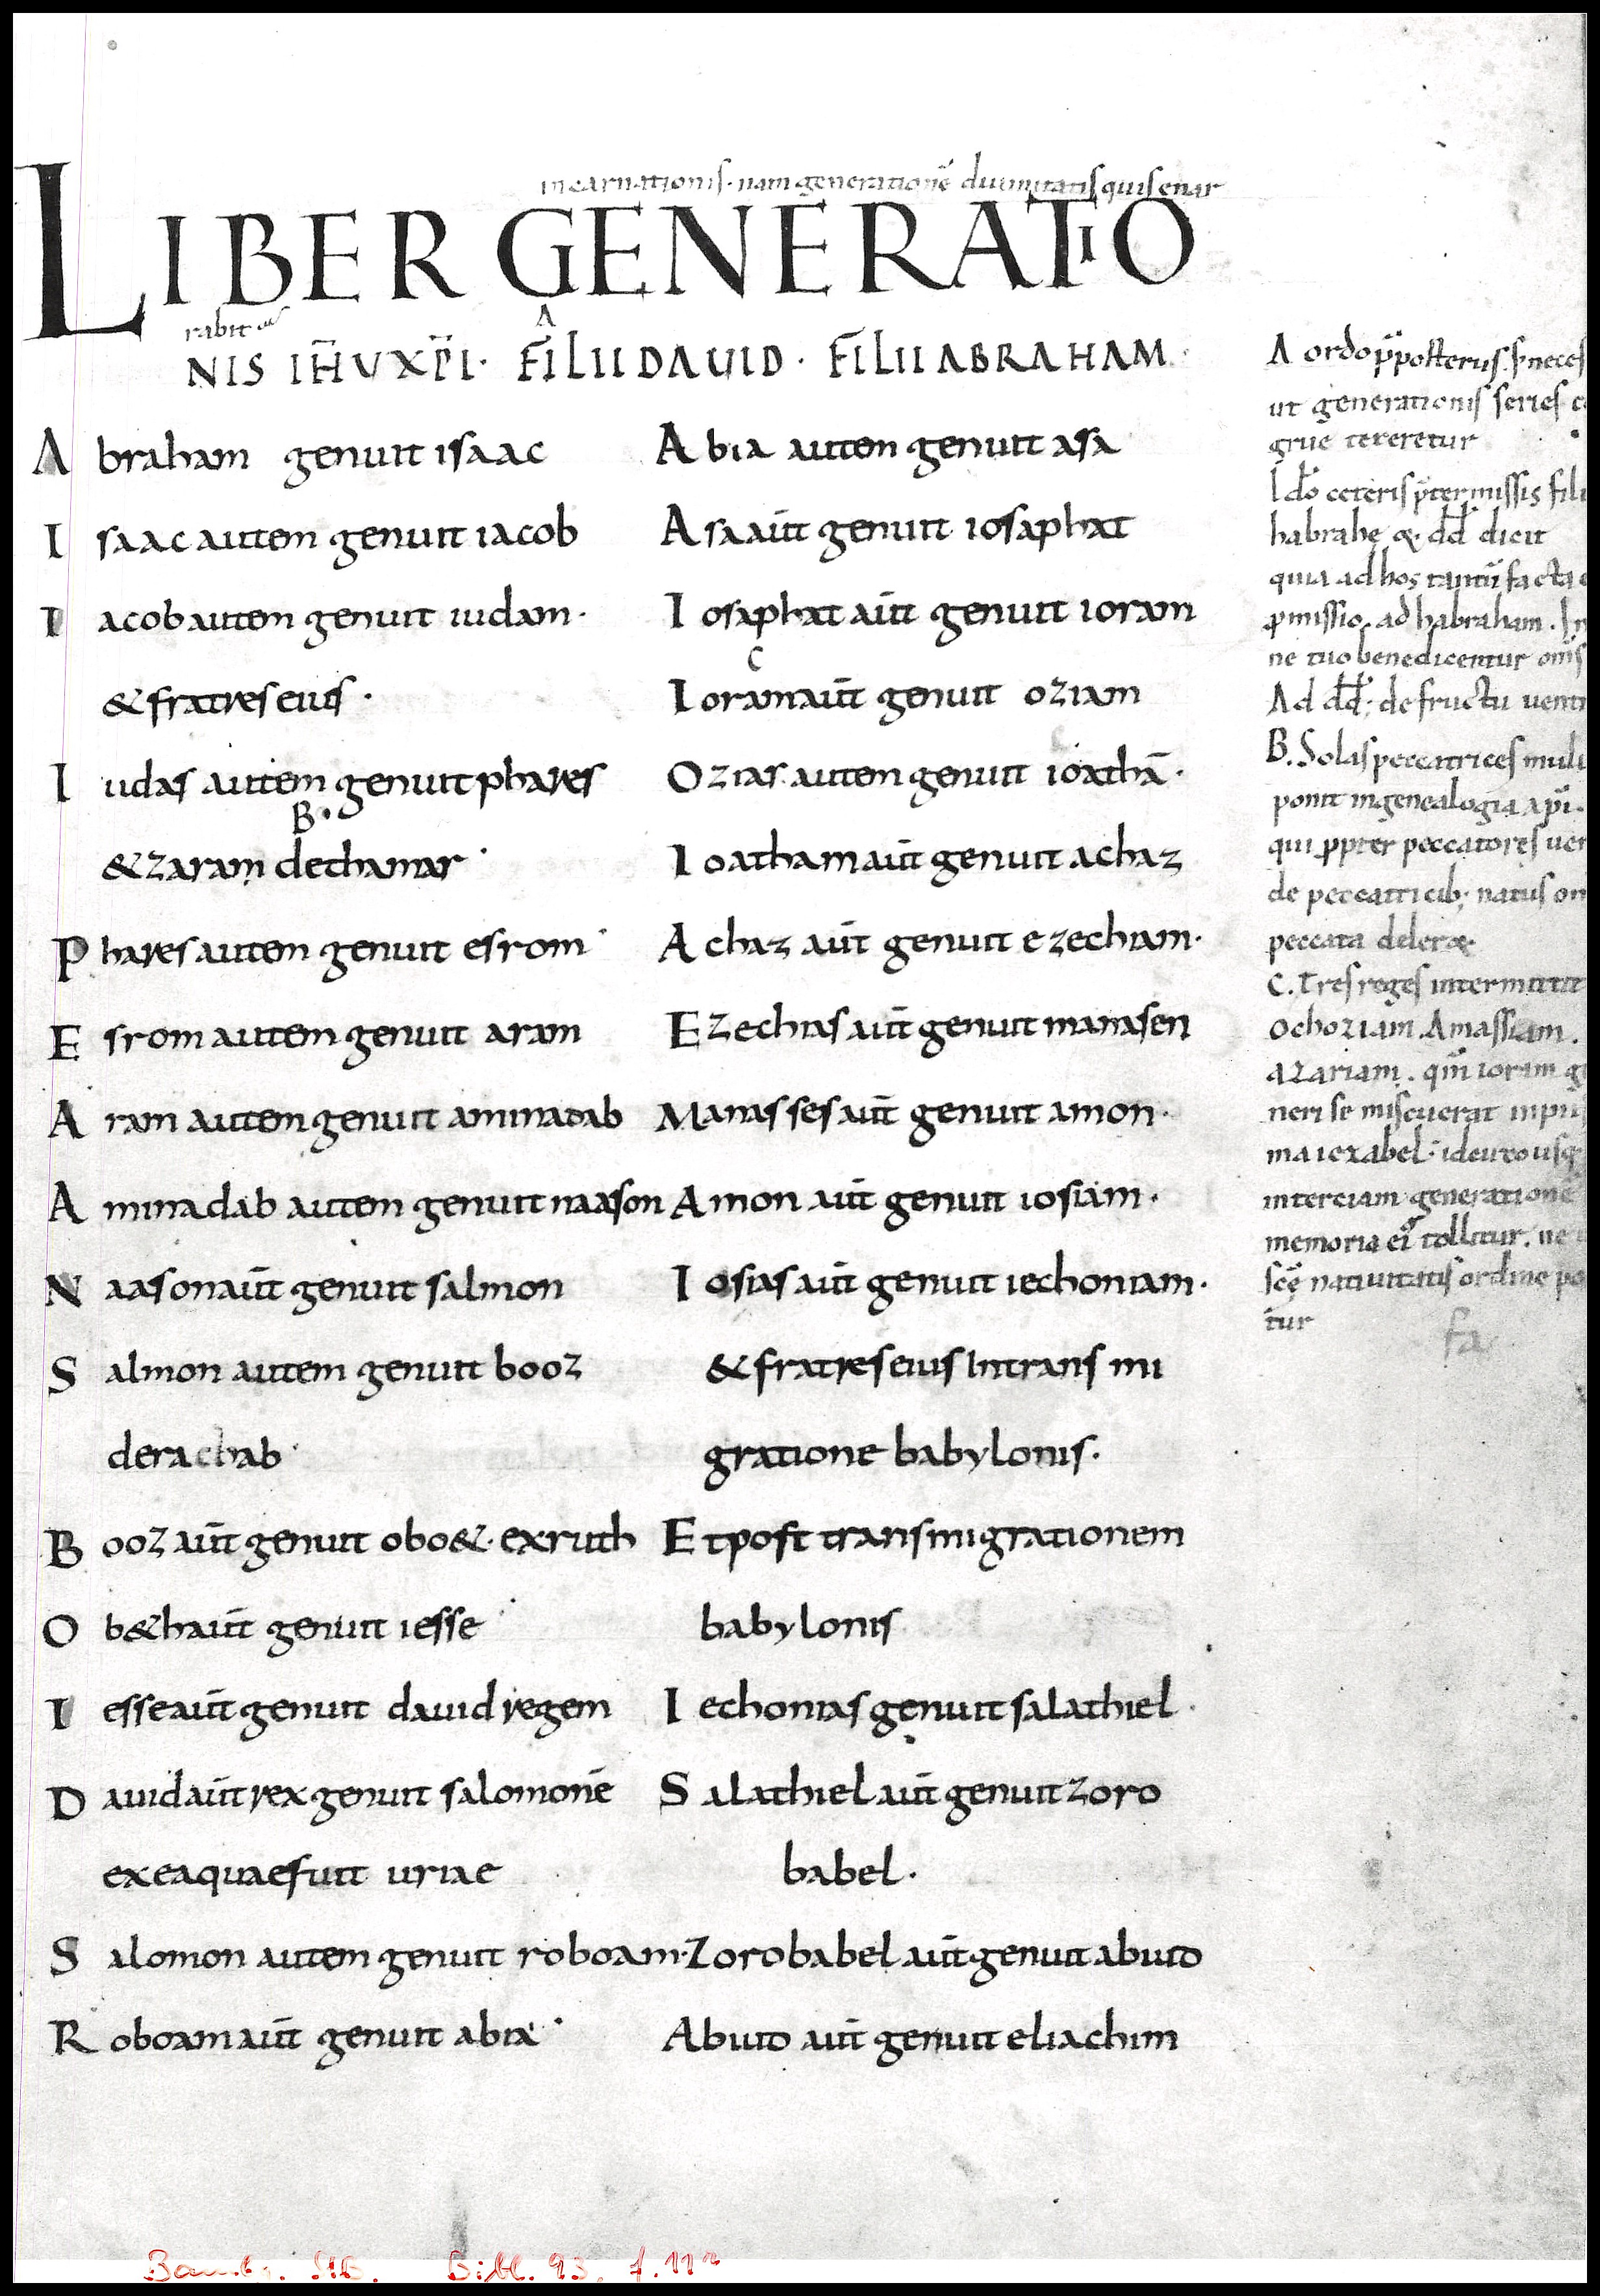 incarnationis · nam generationē diuinitatis quis enar
LIBER GENERATIO
rabit
NIS IH̄U XP̄I · FILII DAUID · FILII ABRAHAM
Abraham genuit isaac
Isaac autem genuit iacob
Iacob autem genuit iudam ·
& fratres eius ·
Iudas autem genuit phares
B·
& zaram dethamar ·
Phares autem genuit esrom
Esrom autem genuit aram
Aram autem genuit aminadab
Aminadab autem genuit naason
Naason aūt genuit salmon
Salmon autem genuit booz
derachab
Booz aūt genuit obo& · exruth
Ob&h aūt genuit iesse
Iesse aūt genuit dauid regem
Dauid aūt rex genuit salomonē
ex ea quae fuit uriae
Salomon autem genuit roboam ·
Roboam aūt genuit abia ·
Abia autem genuit asa
Asa aūt genuit iosaphat
Iosaphat aūt genuit ioram
C
Ioram aūt genuit oziam
Ozias autem genuit ioathā ·
Ioatham aūt genuit achaz
Achaz aūt genuit ezechiam ·
Ezechias aūt genuit manasen
Manasses aūt genuit amon ·
Amon aūt genuit iosiam ·
Iosias aūt genuit iechoniam ·
& fratres eius Intrans mi
gratione babylonis ·
Et post transmigrationem
babylonis
Iechonias genuit salathiel
Salathiel aūt genuit zoro
babel ·
Zorobabel aūt genuit abiud
Abiud aūt genuit eliachim
A ordo p̄posterus. s; neces
ut generationis series c
grue texeretur
Ido ceteris p̄termissis fili
habrahę & dd̄ dicit
quia ad hos tantū facta
ꝓmissio. ad habraham. In
ne tuo benedicentur om̄s
Ad dd̄; de fructu uentr
B. Solas peccatrices muli
ponit in genealogia xp̄i.
qui ꝓpter peccatores uen
de peccatricib; natus om
peccata deler&
C. Tres reges intermittit
ochoziam. Amassiam.
azariam. qm̄ ioram g
neri se miscuerat inpii
ma iezabel · idcirco usq;
in terciam generationē
memoria ei tollitur. ne
scę natiuitatis ordine po
tur
Bamb. StB. Bibl. 93, f. 11ʳ